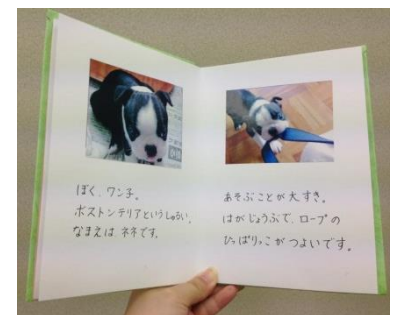 ぼく、ワン子。
ボストンテリアというしゅるい。
なまえは ネネです。
あそぶことが 大すき。
はが じょうぶで、ロープの
ひっぱりっこが つよいです。